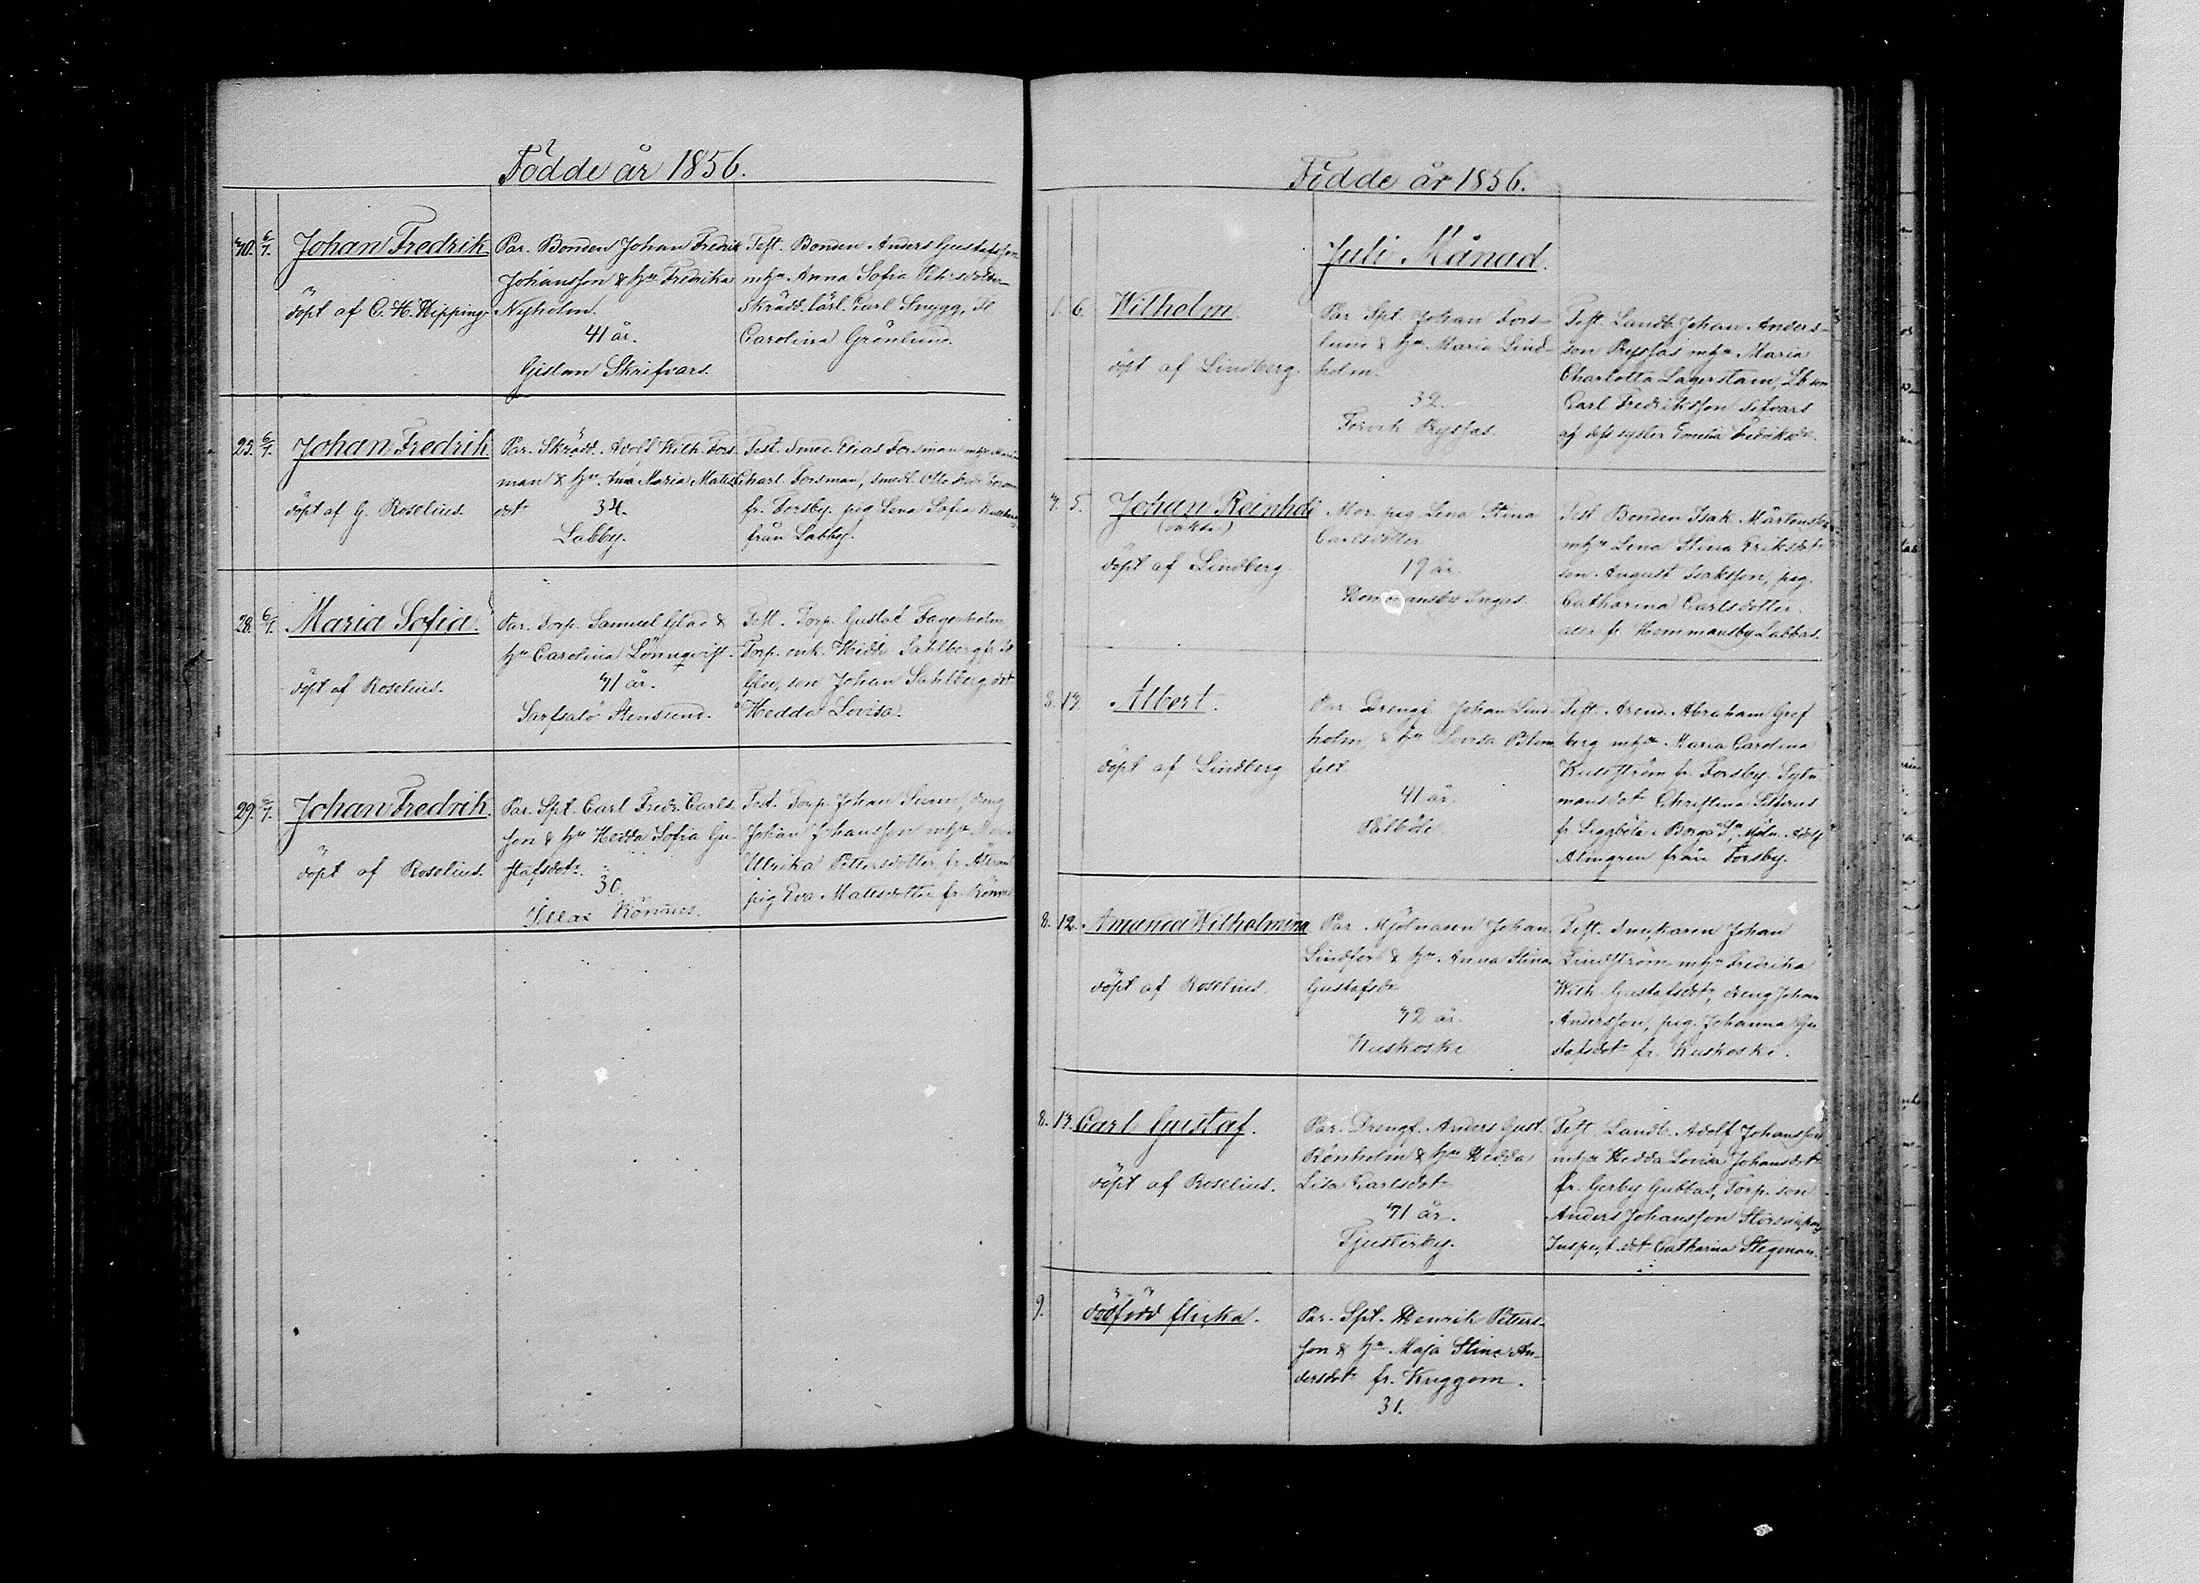 Födde år 1856.
30. 6/7. Johan Fredrik
döpt af C. H. Hipping.
Par. Bonden Johan Fredrik
Johansson & hu Fredrika
Nyholm.
41 år.
Gislom Skrifvars.
Test. Bonden Anders Gustafsson
mhu Anna Sofia
Skrädd. lärl. Carl Snygg,
Carolina Grönlund.
25. 6/7. Johan Fredrik
döpt af G. Roselius.
Par. Skrädd. Adolf Wilh. Fors-
man & hu Anna Maria Mats
dotr 34.
Labby.
Test. Smed. Elias Forsman mhu
Charl. Forsman, smedl. Otto
fr. Forsby. pig Lena Sofia
från Labby.
28. 6/7. Maria Sofia.
döpt af Roselius.
Par. Torp. Samuel Glad &
hu Carolina Lönnqvist.
31 år.
Sarfsalö Stensund.
Test. Torp. Gustaf Fagerholm
Torp. enk. Hedda Sahlberg fr.
son Johan Sahlberg dotr
Hedda Lovisa.
29. 6/7. Johan Fredrik.
döpt af Roselius.
Par. Spt. Carl Fredr. Carls-
son & hu Hedda Sofia Gu-
stafsdotr.
30.
Rönnäs.
Test. Torp. Johan dreng
Johan Johansson mhu Maria
Ulrika Pettersdotter fr.
pig Eva Matsdotter fr. Rönnäs
Födde år 1856.
Juli Månad.
1. 6. Wilhelm
döpt af Lindberg.
Par Spt. Johan Fors-
lund & hu Maria Lind-
holm.
32.
Forsvik Ryssas.
Test. Landb. Johan Anders-
son Ryssas mhu Maria
Charlotta Lagerstam, Lb son
Carl Fredriksson Sifvars
af dess syster Fredriksdr.
7. 5. Johan Reinhold
(oäkta)
döpt af Lindberg.
Mor. pig. Lena Stina
Carlsdotter
19 år.
Hemmansby Ingas.
Test Bonden Isak Mårtensson
mhu Lena Stina Eriksdotr
son August Isaksson, pig.
Catharina Carlsdotter.
alla fr. Hemmansby Labbas.
8. 13. Albert.
döpt af Lindberg
Par Drengf. Johan Lind-
holm, & hu Lovisa Blom
felt.
41 år.
Test. Arend. Abraham Gref
berg mhu Maria Carolina
Kullström fr. Forsby. Sytn.
mansdotr Christina
fr. Siggböle i Borgå Sn, Mjöln. Adolf
Almgren från Forsby.
8. 12. Amanda Wilhelmina
döpt af Roselius.
Par Mjölnaren Johan
Lindfors & hu Anna Stina
Gustafsdr
32 år.
Kuskoski
Test. Snickaren Johan
Lindström mhu Fredrika
Wilh. Gustafsdotr, dreng Johan
Andersson, pig. Johanna Gu
stafsdotr fr. Kuskoski.
8. 13. Carl Gustaf.
döpt af Roselius.
Par. Drengf. Anders Gust.
Rönholm & hu Hedda
Lisa Carlsdotr
31 år.
Tjusterby.
Test. Landb. Adolf Johansson
mhu Hedda Lovisa Johansdotr
fr. Gerby Gubbas, Torp. son
Anders Johansson
Inspekt. dotr Catharina Stegman.
9. dödfödd flicka.
Par. Spt. Henrik Petters-
son & hu Maja Stina An-
dersdotr fr. Kuggom.
31.